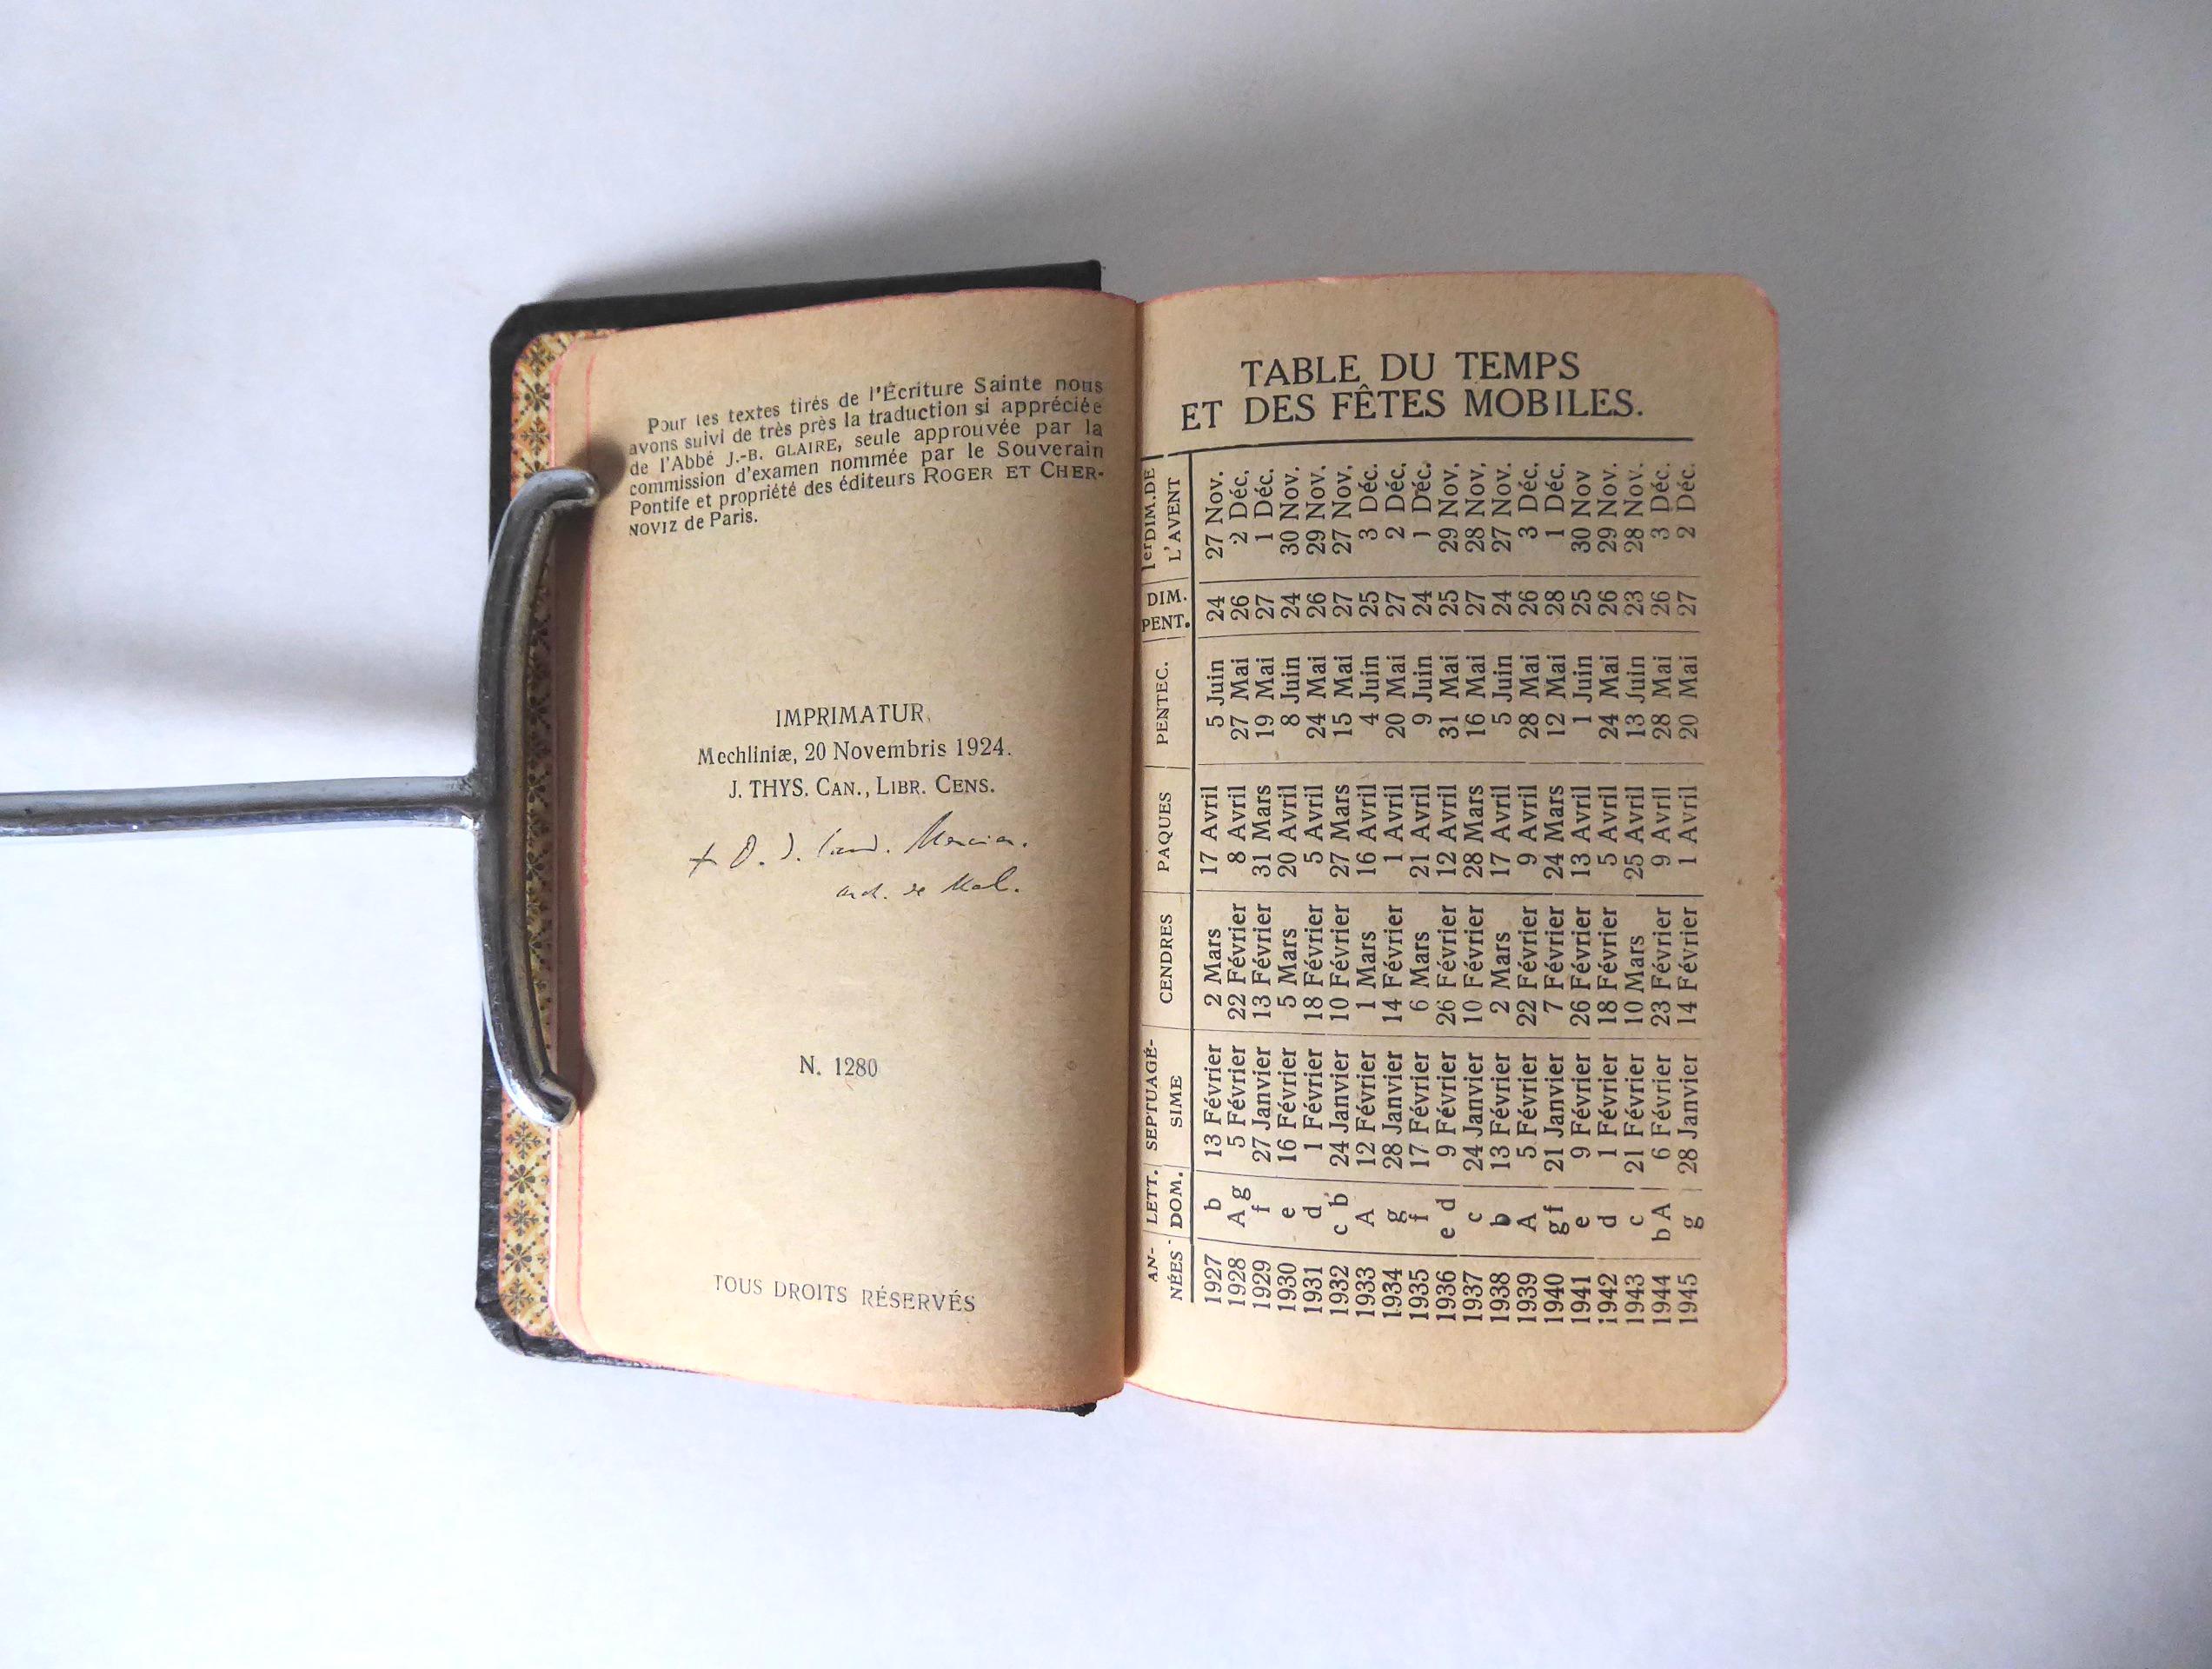 Pour les textes tirés de l'Écriture Sainte nous
avons suivi de très près la traduction si appréciée
de l'Abbé J.-B. GLAIRE, seule approuvée par la
commission d'examen nommée par le Souverain
Pontife et propriété des éditeurs ROGER ET CHER-
NOVIZ de Paris.
IMPRIMATUR,
Mechliniæ, 20 Novembris 1924.
J. THYS. CAN., LIBR. CENS.
+ D. J. Card. Mercier.
arch. de Mal.
N. 1280
TOUS DROITS RÉSERVÉS
TABLE DU TEMPS
ET DES FÊTES MOBILES.
AN-NÉES LETT. DOM. SEPTUAGÉ-SIME CENDRES PAQUES PENTEC. DIM. PENT. 1er DIM. DE L'AVENT
1927 b 13 Février 2 Mars 17 Avril 5 Juin 24 27 Nov.
1928 A g 5 Février 22 Février 8 Avril 27 Mai 26 2 Déc.
1929 f 27 Janvier 13 Février 31 Mars 19 Mai 27 1 Déc.
1930 e 16 Février 5 Mars 20 Avril 8 Juin 24 30 Nov.
1931 d 1 Février 18 Février 5 Avril 24 Mai 26 29 Nov.
1932 c b 24 Janvier 10 Février 27 Mars 15 Mai 27 27 Nov.
1933 A 12 Février 1 Mars 16 Avril 4 Juin 25 3 Déc.
1934 g 28 Janvier 14 Février 1 Avril 20 Mai 27 2 Déc.
1935 f 17 Février 6 Mars 21 Avril 9 Juin 24 1 Déc.
1936 e d 9 Février 26 Février 12 Avril 31 Mai 25 29 Nov.
1937 c 24 Janvier 10 Février 28 Mars 16 Mai 27 28 Nov.
1938 b 13 Février 2 Mars 17 Avril 5 Juin 24 27 Nov.
1939 A 5 Février 22 Février 9 Avril 28 Mai 26 3 Déc.
1940 g f 21 Janvier 7 Février 24 Mars 12 Mai 28 1 Déc.
1941 e 9 Février 26 Février 13 Avril 1 Juin 25 30 Nov
1942 d 1 Février 18 Février 5 Avril 24 Mai 26 29 Nov.
1943 c 21 Février 10 Mars 25 Avril 13 Juin 23 28 Nov.
1944 b A 6 Février 23 Février 9 Avril 28 Mai 26 3 Déc.
1945 g 28 Janvier 14 Février 1 Avril 20 Mai 27 2 Déc.